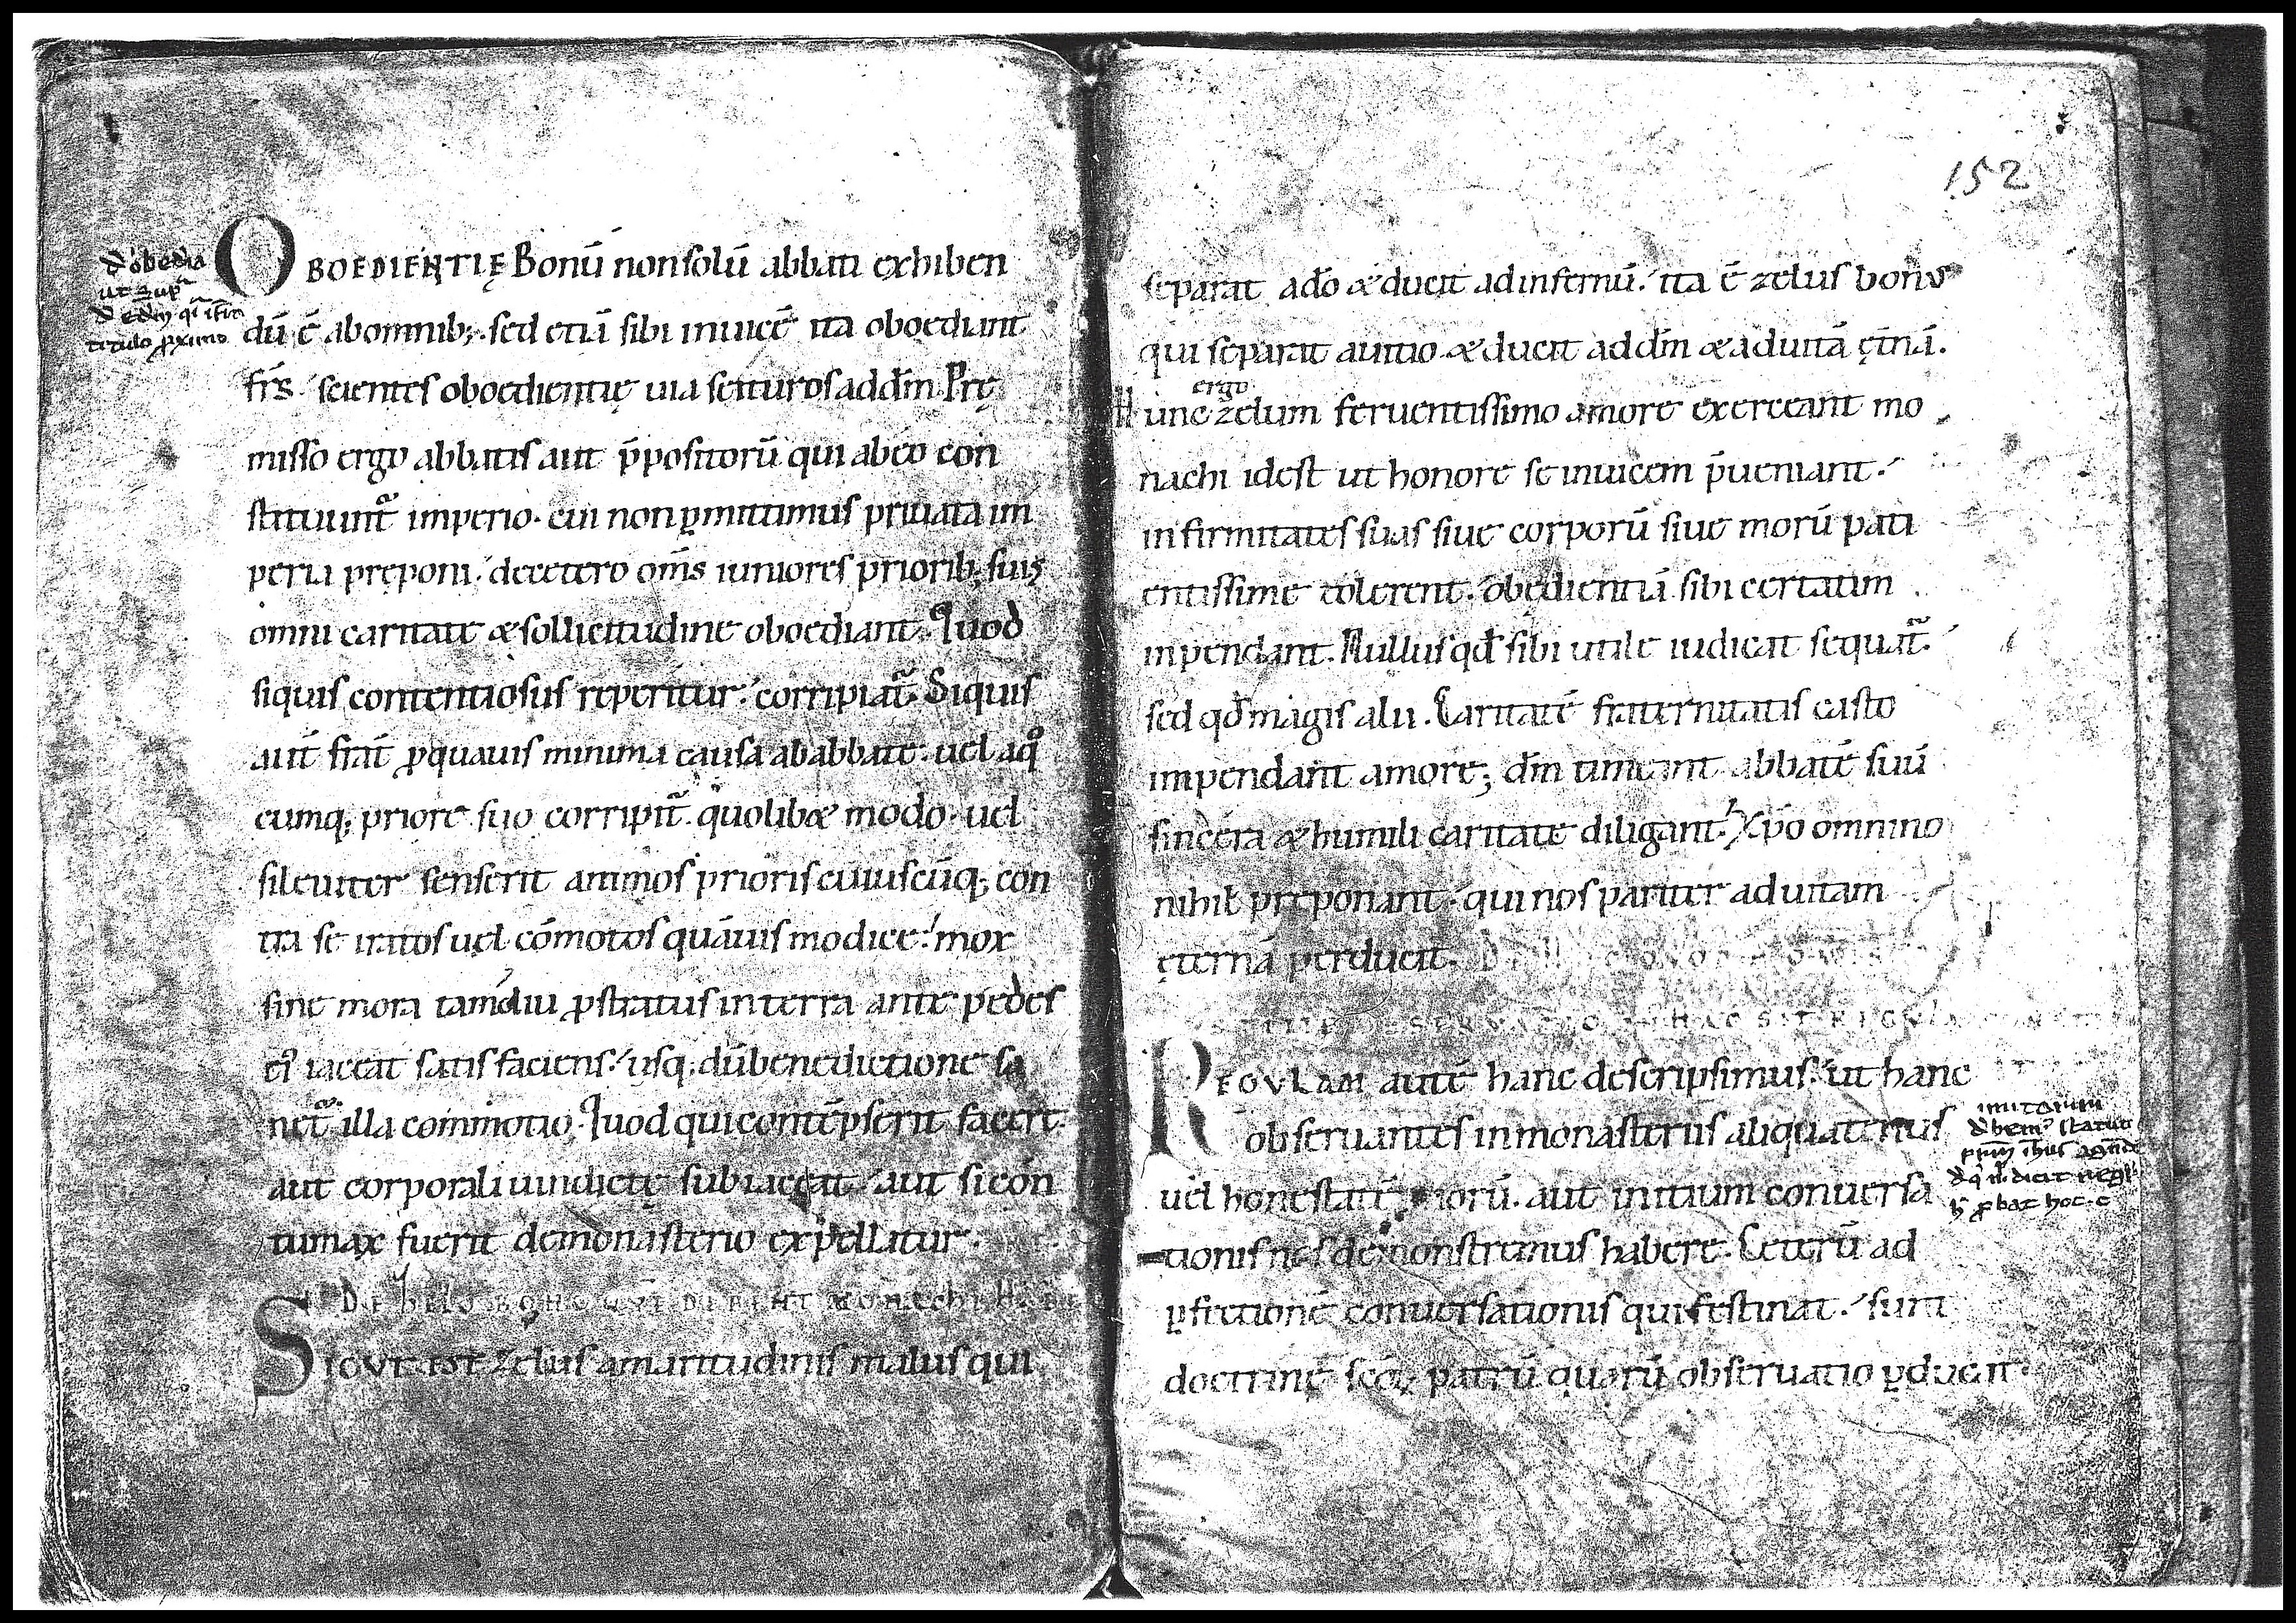 OBOEDIENTIĘ Bonū non solū abbati exhiben
dū ē ab omnib; sed etiā sibi inuicē ita oboediant
frs̄ scientes oboedientię uia se ituros ad dm̄. Prę
misso ergo abbatis aut p̄positorū qui ab eo con
stituunt᷑ imperio. cui non ꝑmittimus priuata im
peria pręponi. de cetero om̄s iuniores priorib; suis
omni caritate & sollicitudine oboediant. Quod
siquis contentiosus reperitur. corripiat᷑. Siquis
aut̄ frat̄ ꝓ quauis minima causa ab abbate. uel a qo
cumq; priore suo corripit᷑ quolib& modo. uel
sileuiter senserit animos prioris cuiuscūq; con
tra se iratos uel cōmotos quāuis modice. mox
sine mora tamdiu ꝓstratus in terra ante pedes
ei᷒ iaceat satisfaciens. usq; dū benedictione sa
net᷑ illa commotio. Quod qui contēpserit facere
aut corporali uindictę subiaceat aut si con
tumax fuerit de monasterio expellatur.
SICUT EST zelus amaritudinis malus qui
152
separat a do̅ & ducit ad infernū. ita ē zelus bonus
qui separat a uitio & ducit ad dm̄ & ad uitā ęt̄nā.
ergo
Hunc zelum feruentissimo amore exerceant mo
nachi id est ut honore se inuicem p̄ueniant.
infirmitates suas siue corporū siue morū pati
entissime tolerent. obędientiā sibi certatim
inpendant. Nullus qd̄ sibi utile iudicat sequat᷑.
sed qd̄ magis alii. Caritatē fraternitatis casto
impendant amore; dm̄ timeant abbatē suū
sincera & humili caritate diligant. Xp̄o omnino
nihil pręponant. qui nos pariter ad uitam
ęternā perducit.
REGULAM autē hanc descripsimus. ut hanc
obseruantes in monasteriis aliquatenus
uel honestatē morū. aut initium conuersa
tionis nos demonstremus habere. Ceterū ad
ꝑfectionē conuersationis qui festinat. sunt
doctrinę scō℞ patrū quarū obseruatio ꝑducit.